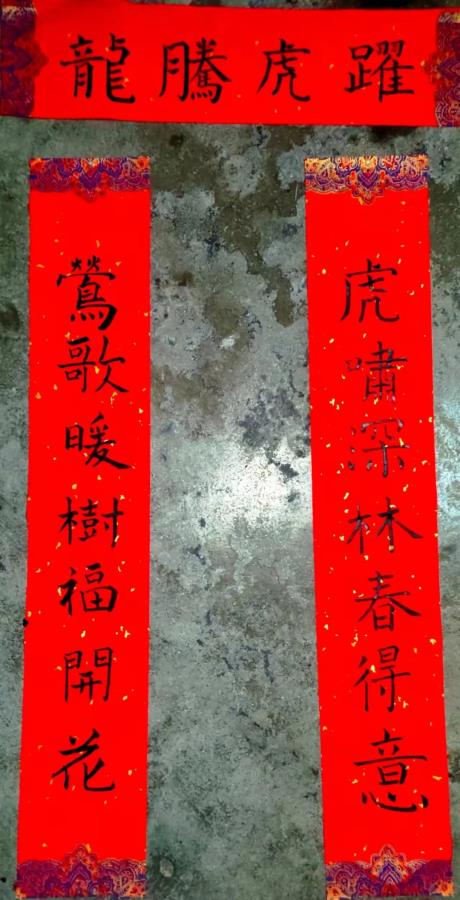 龍騰虎躍
虎嘯深林春得意
鶯歌暖樹福開花